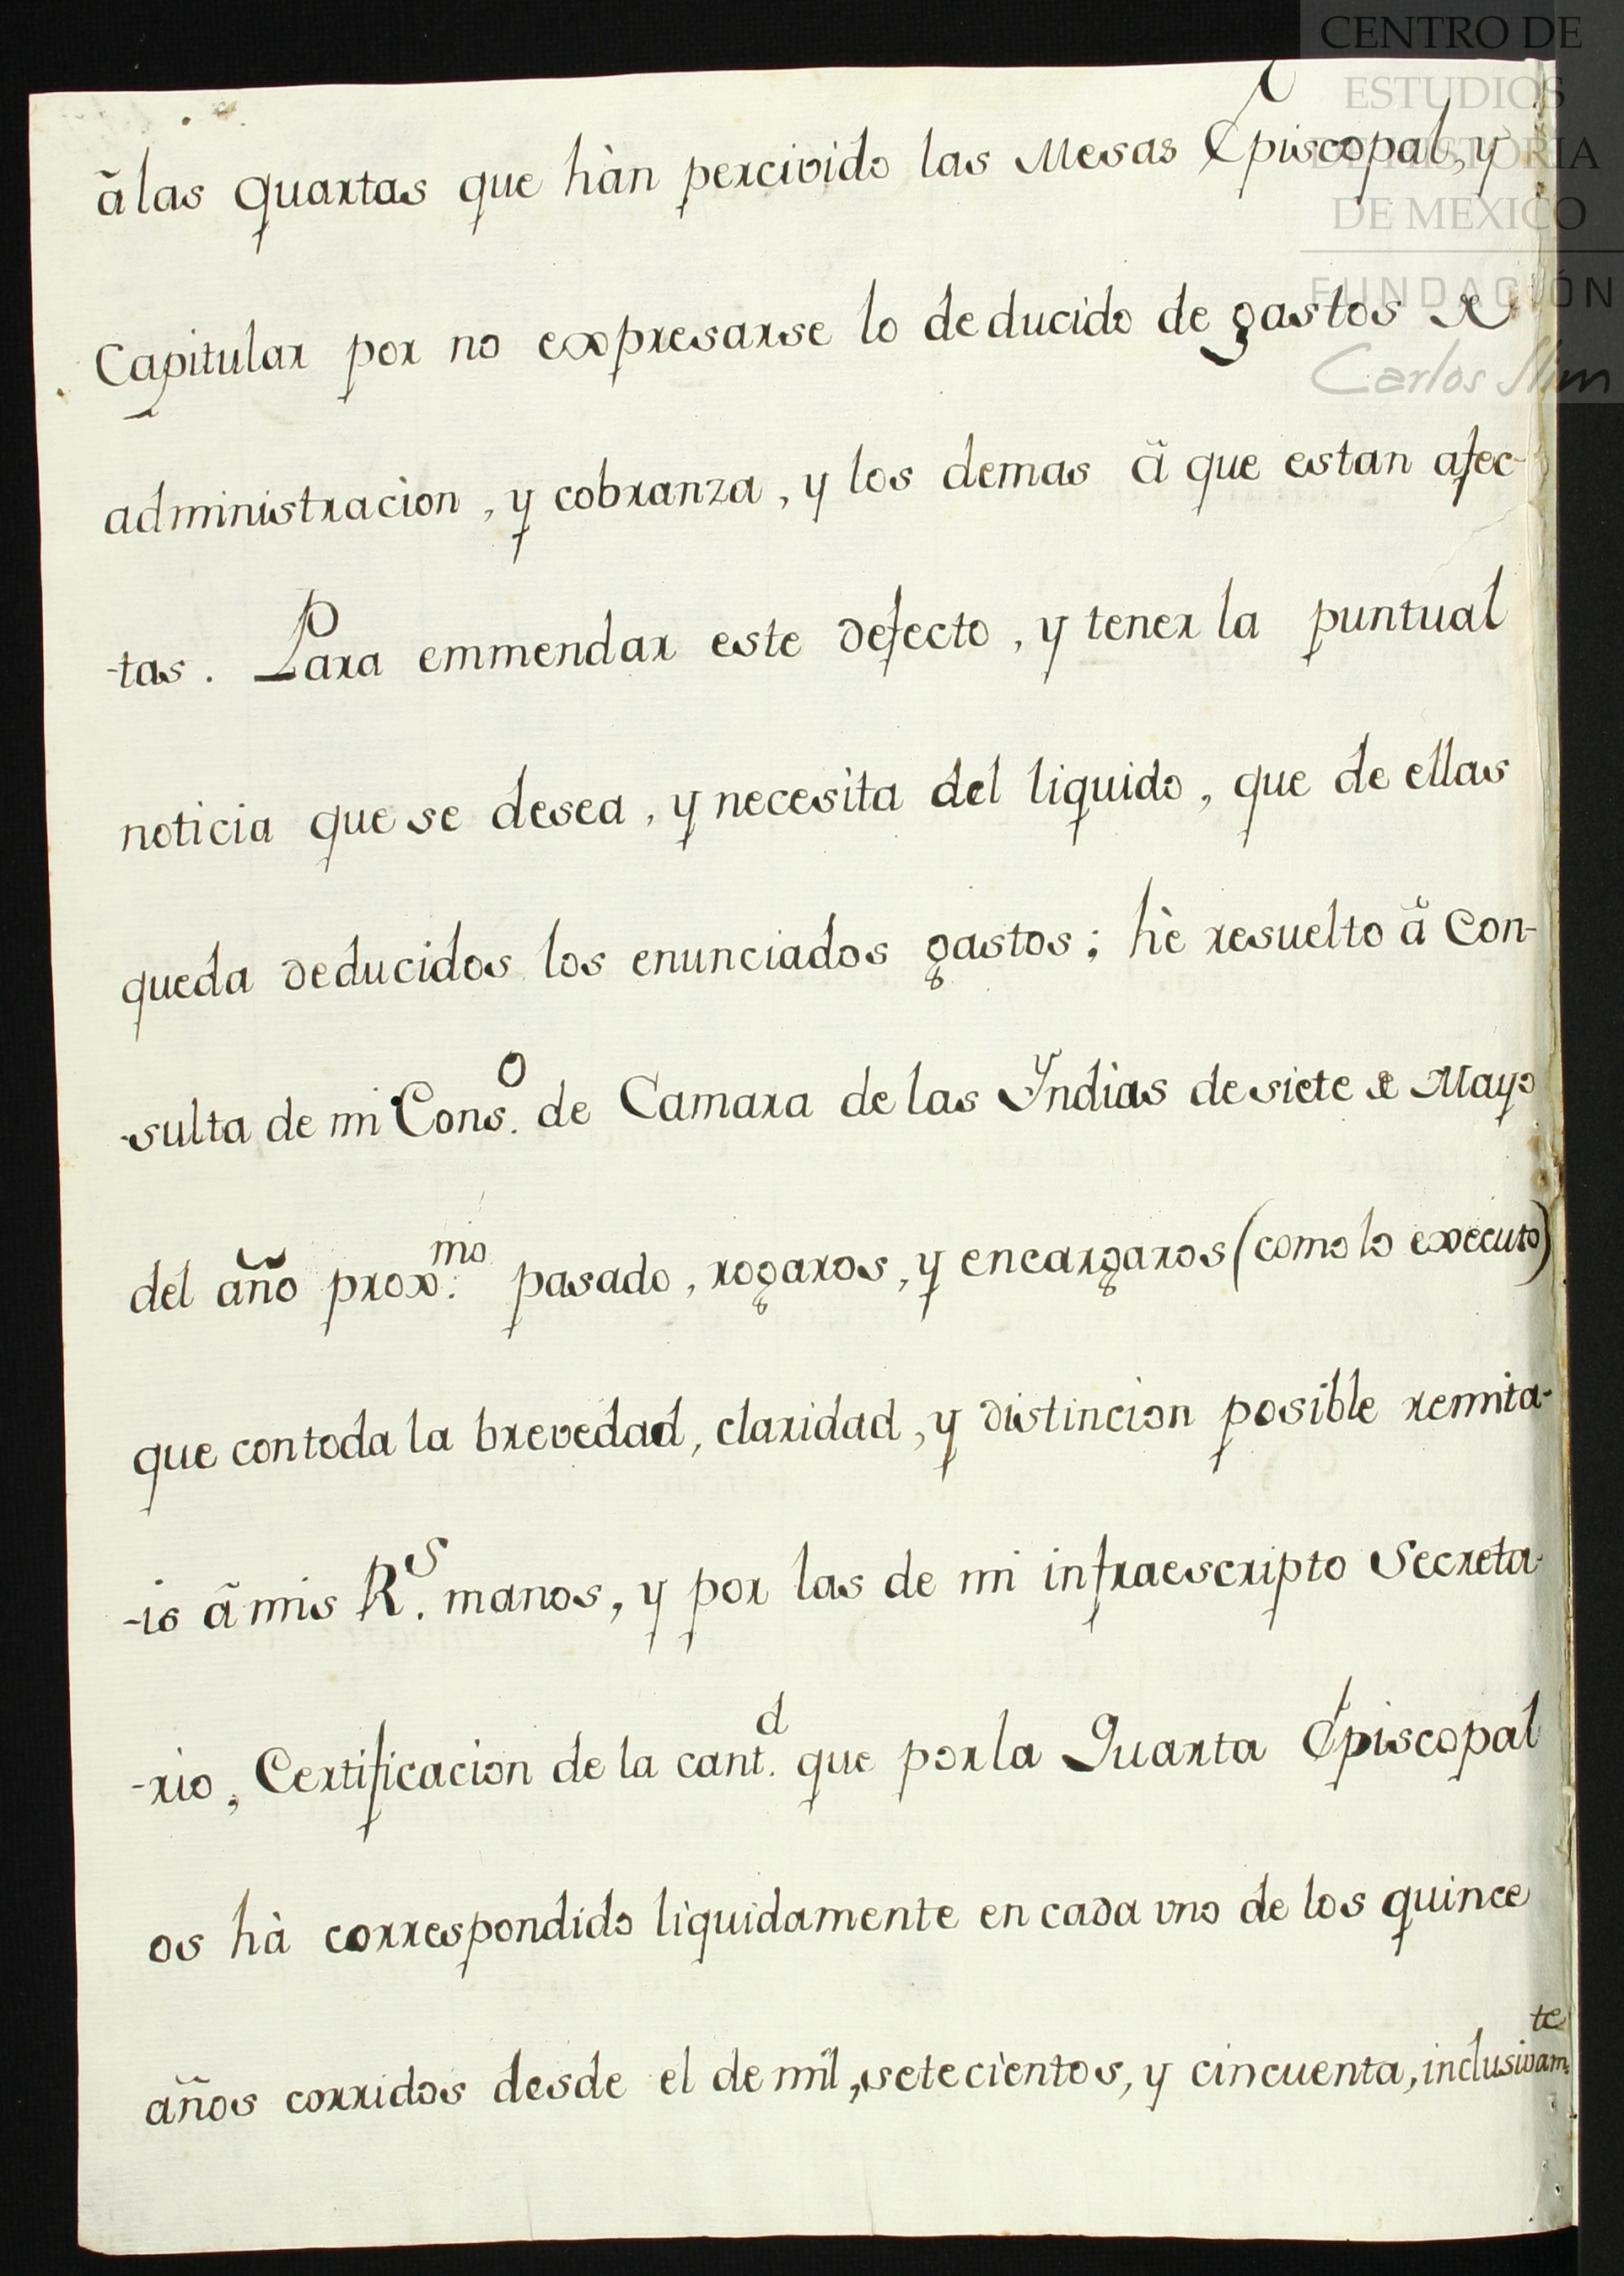 CENTRO DE
ESTUDIOS
DE HISTORIA
DE MEXICO
FUNDACIÓN
Carlos Slim
ã las quartas que hàn percivido las Mesas Episcopal, y
Capitular por no expresarse lo deducido de gastos de
administracion, y cobranza, y los demas ã que estan afec-
-tas. Para emmendar este defecto, y tener la puntual
noticia que se desea, y necesita del liquido, que de ellas
queda deducidos los enunciados gastos; hè resuelto ã Con-
-sulta de mi Cons.º de Camara de las Yndias de siete de Mayo
del año prox.mo pasado, rogaros, y encargaros (como lo executo)
que con toda la brevedad, claridad, y distincion posible remita-
-is ã mis R.s manos, y por las de mi infraescripto Secreta-
-rio, Certificacion de la cant.d que por la Quarta Episcopal
os hà correspondido liquidamente en cada vno de los quince
años corridos desde el de mil, setecientos, y cincuenta, inclusivam.te